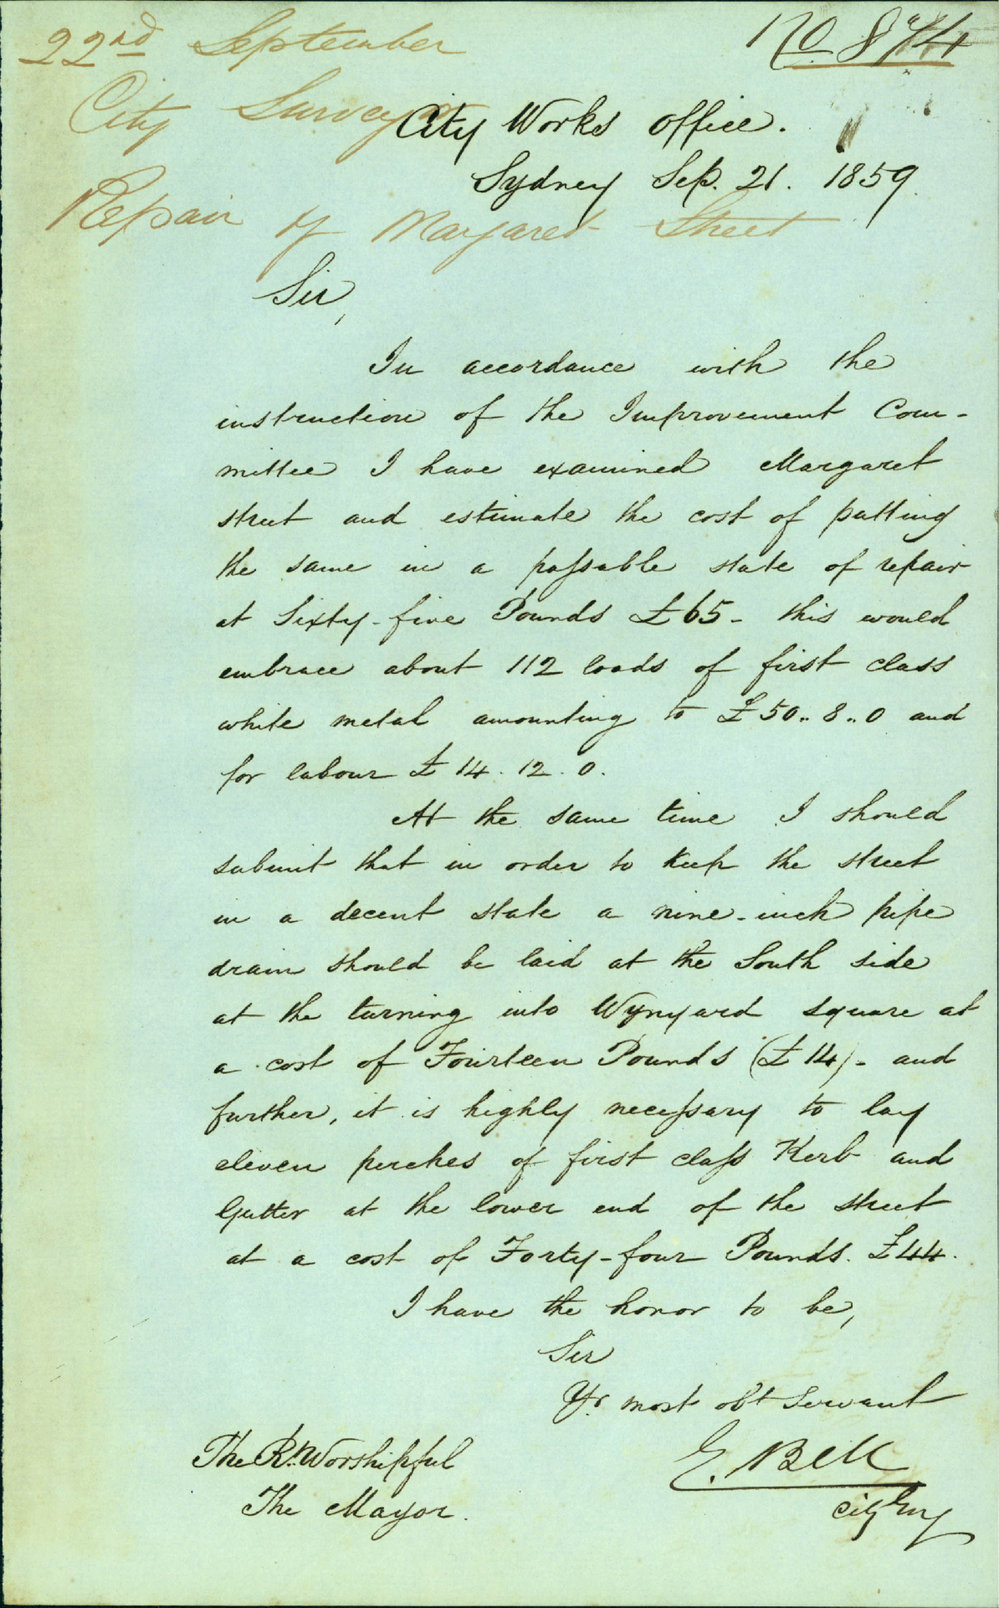 22nd September
No 874
City Surveyor
City Works Office.
Sydney Sep. 21. 1859.
Repair of Margaret Street
Sir,
In accordance with the
instruction of the Improvement Com-
mittee I have examined Margaret
street and estimate the cost of putting
the same in a passable state of repair
at Sixty-five Pounds £65- this would
embrace about 112 loads of first class
white metal amounting to £50..8..0 and
for labour £14.12.0.
At the same time I should
submit that in order to keep the street
in a decent state a nine-inch pipe
drain should be laid at the South side
at the turning into Wynyard square at
a cost of Fourteen Pounds (£14)- and
further, it is highly necessary to lay
eleven perches of first class Kerb and
Gutter at the lower end of the street
at a cost of Forty-four Pounds. £44.
I have the honor to be,
Sir
Yr. most obt Servant
E. Bell
City Eng
The Rt. Worshipful
The Mayor.